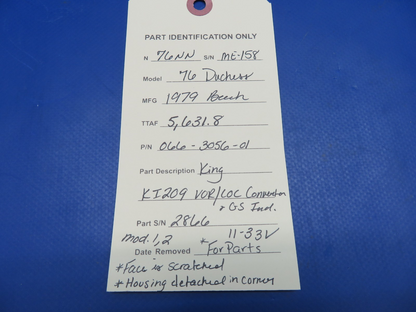 PART IDENTIFICATION ONLY
N 76NN S/N ME-158
Model 76 Duchess
MFG 1979 Beech
TTAF 5,631.8
P/N 066-3056-01
Part Description King
KI209 VOR/LOC Converter
+ GS Ind.
Part S/N 2866
mod. 1,2 * 11-33V
Date Removed For Parts
* Face is scratched
* Housing detached in corner